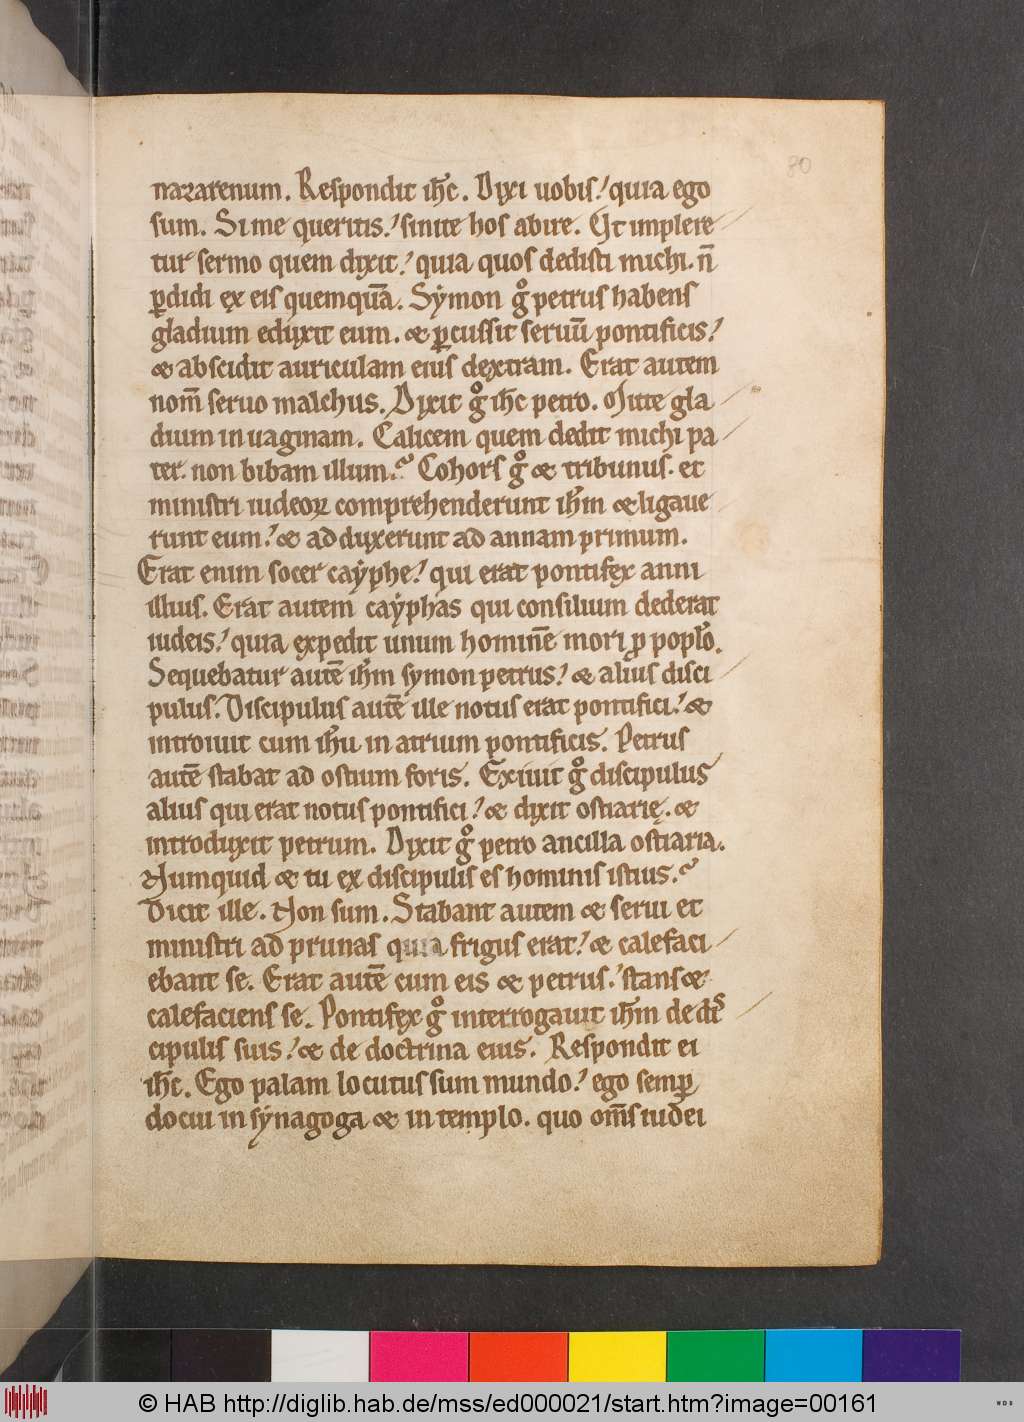 80
nazarenum. Respondit ih̅c. Dixi uobis; quia ego
sum. Si me queritis; sinite hos abire. Ut implere
tur sermo quem dixit; quia quos dedisti michi. n̅
p̱didi ex eis quemqua̅. Sẏmon gͦ petrus habens
gladium eduxit eum. & p̱cussit seruu̅ pontificis;
& abscidit auriculam eius dextram. Erat autem
nom̅ seruo malchus. Dixit gͦ ih̅c petro. Mitte gla
dium in uaginam. Calicem quem dedit michi pa
ter. non bibam illum? Cohors gͦ & tribunus. et
ministri iudeoꝝ comprehenderunt ih̅m & ligaue
runt eum; & ad duxerunt ad annam primum.
Erat enim socer caẏphe; qui erat pontifex anni
illius. Erat autem caẏphas qui consilium dederat
iudeis; quia expedit unum homine̅ mori ꝓ popl̅o.
Sequebatur aute̅ ih̅m symon petrus; & alius disci
pulus. Discipulus aute̅ ille notus erat pontifici; &
introiuit cum ih̅u in atrium pontificis. Petrus
aute̅ stabat ad ostium foris. Exiuit gͦ discipulus
alius qui erat notus pontifici; & dixit ostiarię. &
introduxit petrum. Dixit gͦ petro ancilla ostiaria.
Numquid & tu ex discipulis es hominis istius?
Dicit ille. Non sum. Stabant autem & serui et
ministri ad prunas quia frigus erat; & calefaci
ebant se. Erat aute̅ cum eis & petrus; stans &
calefaciens se. Pontifex gͦ interrogauit ih̅m de di
cipulis suis; & de doctrina eius. Respondit ei
ih̅c. Ego palam locutus sum mundo; ego semp̱
docui in sẏnagoga & in templo. quo om̅s iudei
© HAB http://diglib.hab.de/mss/ed000021/start.htm?image=00161